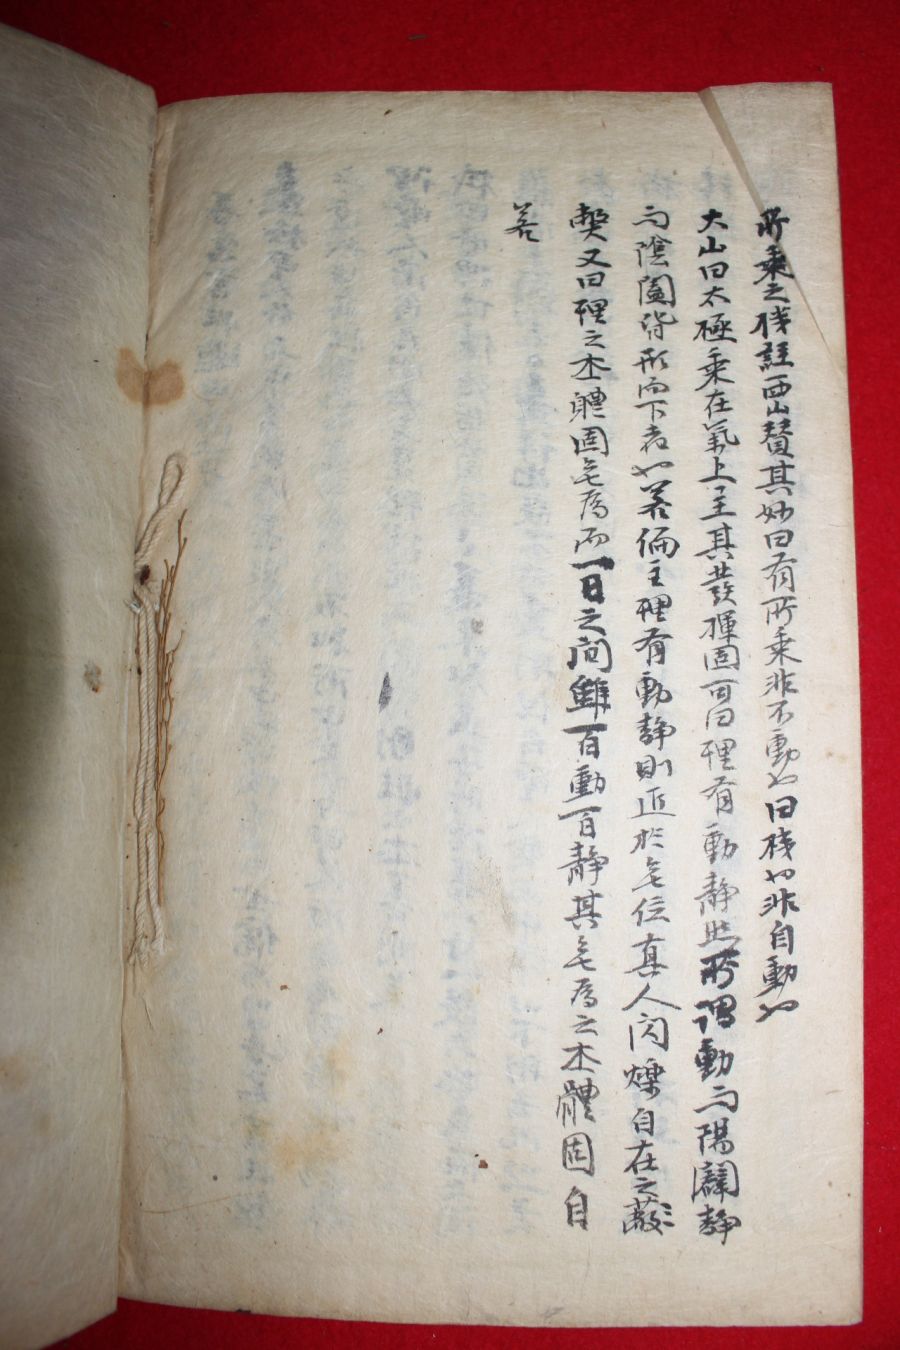 所乘之機註西山贊其妙曰有所乘非不動也曰機也非自動也
大山曰太極乘在氣上主其發揮固可曰理有動靜然所謂動而陽闢靜
而陰闔皆形而下者也若偏主理有動靜則近於無位真人閃爍自在之蔽
契又曰理之本體固無爲而一日之間雖百動百靜其無爲之本體固自
若